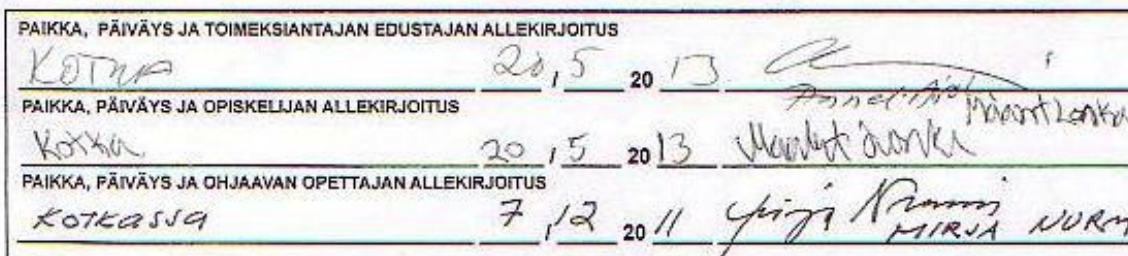 PAIKKA, PÄIVÄYS JA TOIMEKSIANTAJAN EDUSTAJAN ALLEKIRJOITUS
KOTKA 20,5 2013
PAIKKA, PÄIVÄYS JA OPISKELIJAN ALLEKIRJOITUS
Kotka 20,5 2013
PAIKKA, PÄIVÄYS JA OHJAAVAN OPETTAJAN ALLEKIRJOITUS
KOTKASSA 7,12 2011 MIRJA NURM